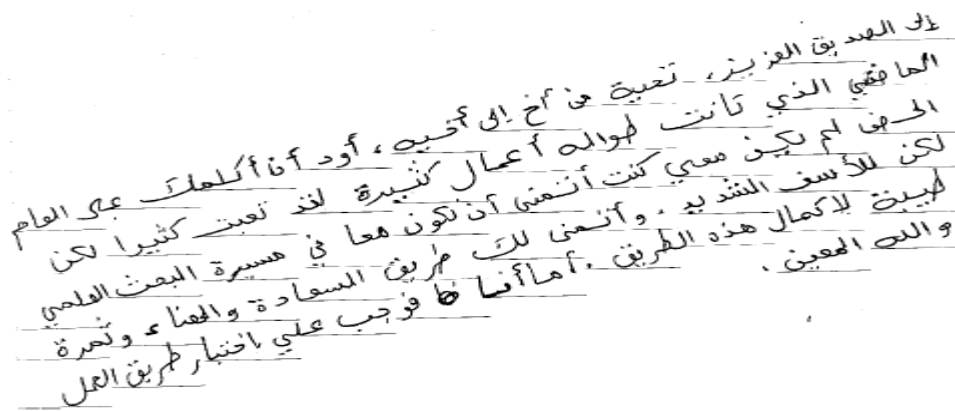 إلى الصديق العزيز، تحية من أخ إلى أخيه، أود أن أكلمك عن العام
الماضي الذي كانت طواله أعمال كثيرة لقد تعبت كثيرا لكن
الحض لم يكن معي كنت أتمنى أن نكون معا في مسيرة البحث العلمي
لكن للأسف الشديد. وأتمنى لك طريق السعادة والهناء وثمرة
طيبة لاكمال هذه الطريق. أما أنا فوجب علي اختيار طريق العمل
والله المعين.